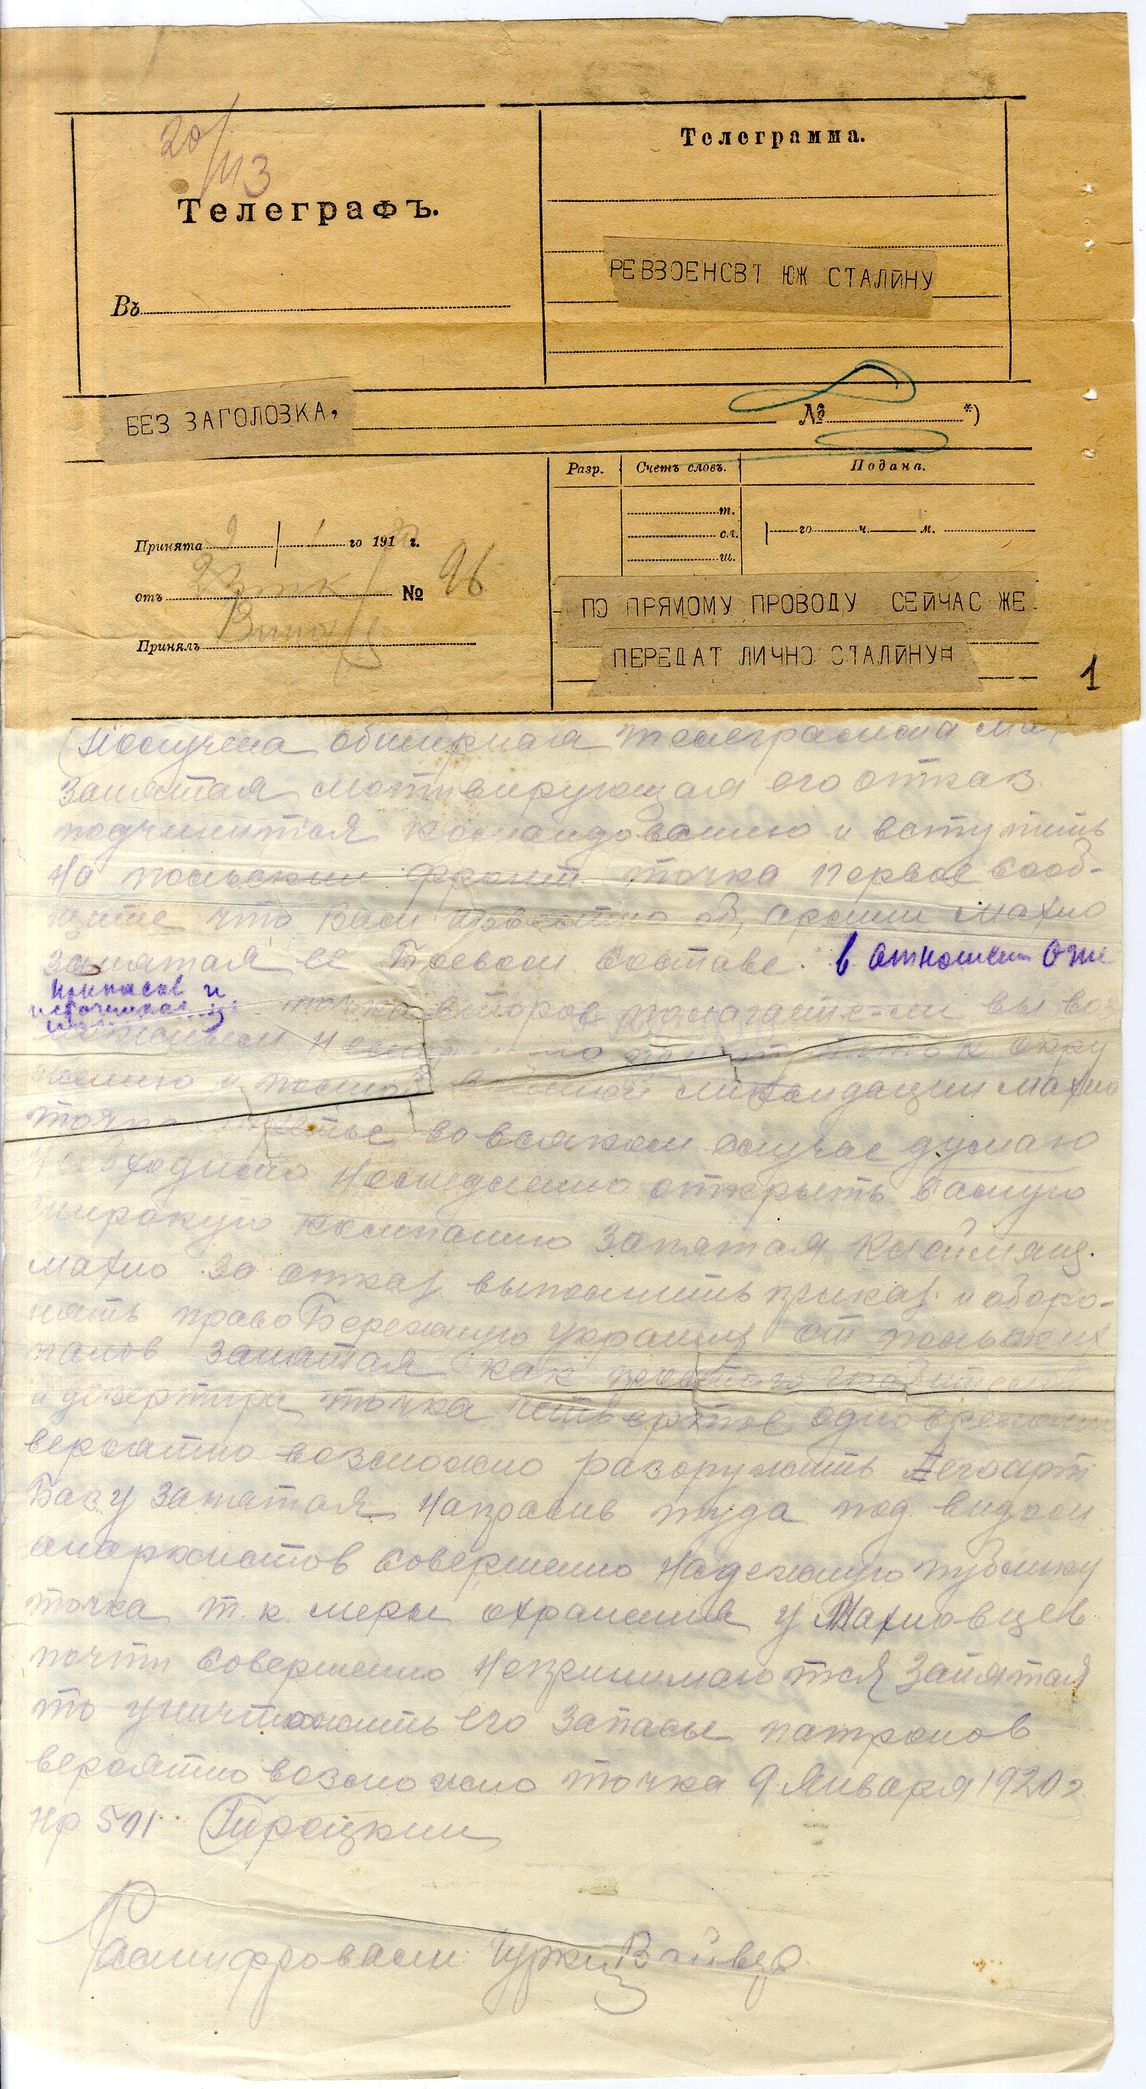 20/113
Телеграмма.
Телеграфъ.
РЕВВЗОЕНСВТ ЮЖ СТАЛИНУ
Въ
БЕЗ ЗАГОЛОЗКА,
№ *)
Разр. Счетъ словъ. Подана.
т.
го ч. м.
сл.
ш.
Принята 9 / 1 го 1918 г.
отъ № 96
Принялъ
ПО ПРЯМОМУ ПРОВОДУ СЕЙЧАС ЖЕ
ПЕРЕДАТ ЛИЧНО СТАЛИНУ
1
Получена обширная телеграмма
запятая мотивирующая его отказ
подчинится командованию и вступить
на польский фронт точка первое сооб-
щите что вам известно об армии махно
запятая ее Боевом составе. в отношении огне
припасов и
источниках
точка второе полагаете-ли вы воз
можным окру
жению и полной ликвидации махно
точка третье во всяком случае думаю
необходимо немедленно открыть самую
широкую компанию запятая клеймящ.
махно за отказ выполнить приказ и оборо-
нять право Бережную украину от польских
панов запятая как
и дезертира точка четвертое одновременно
вероятно возможно разоружить его арт
Базу запятая направив туда под видом
анархистов совершенно надежную публику
точка т. к. меры охранения у Махновцев
почти совершенно непринимаются запятая
то уничтожить его запасы патронов
вероятно возможно точка 9 Января 1920 г
Нр 501 Троцкий
Расшифровали: